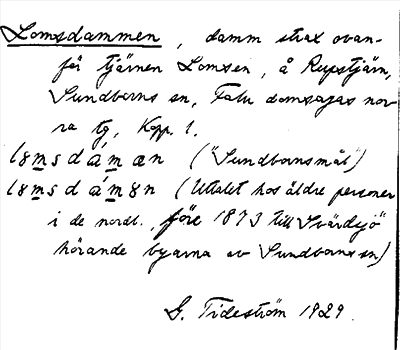 Lomsdammen, damm strax ovan-
för tjärnen Lomsen, å Rupstjärn,
Sundborns sn, Falu domsagas nor-
ra tg, Kopp. l.
lomsdámæn ("Sundbornsmål")
lomsdámon (Uttalet hos äldre personer
i de nordl., före 1873 till Svärdsjö
hörande byarna av Sundborns sn)
G. Tideström 1929.